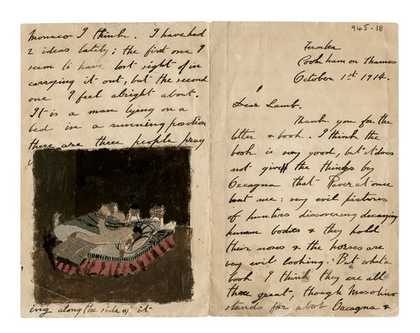 945-18
Fernlea
Cookham on Thames
October 1st 1914.
Dear Lamb.
Thank you for the
letter & book. I think the
book is very good, but it does
not give the things by
Orcagna that at once
lent me; very evil pictures
of hunters discovering decaying
human bodies & they hold
their noses & the horses are
very evil looking. But
book I think they are all
these great, though Masolino
stands for Orcagna &
Monaco I think. I have had
2 ideas lately; the first one I
seem to have lost sight of in
carrying it out, but the second
one I feel alright about.
It is a man lying on a
bed in a running position
there are three people pray
ing along the side of it